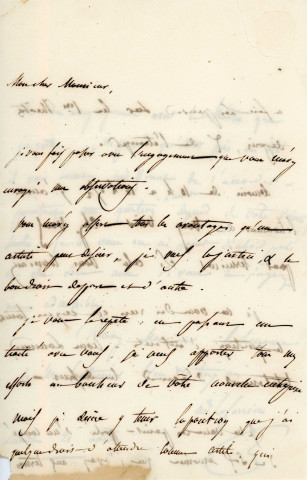 Mon cher Monsieur,
je vous fais passer avec l'engagement que vous m'avez
envoyé mes observations.
vous m'avez offert tous les avantages qu'un
artiste peut désirer, je
d'ajouter et d'autre.
je vous le répète en passant un
traité avec vous, je veux apporter tous mes
efforts au bonheur de votre nouvelle entreprise
mais je désire y tenir la position que j'ai
quelques droits d'attendre comme artiste, qui